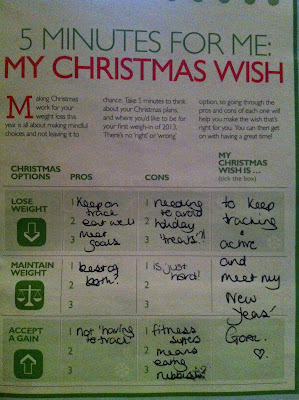 5 MINUTES FOR ME:
MY CHRISTMAS WISH
Making Christmas
work for your
weight loss this
year is all about making mindful
choices and not leaving it to
chance. Take 5 minutes to think
about your Christmas plans,
and where you'd like to be
for your first weigh-in of 2013.
There's no 'right' or 'wrong'
option, so going through the
pros and cons of each one will
help you make the wish that's
right for you. You can then get
on with having a great time!
CHRISTMAS
OPTIONS
PROS
CONS
MY
CHRISTMAS
WISH IS ...
(tick the box)
LOSE
WEIGHT
1 Keep on
track
2 eat well
3 meet
goals
1 needing
to avoid
2 holiday
3 'treats'?!
to keep
tracking
+
active
and
meet my
New
Years'
Goal.
MAINTAIN
WEIGHT
1 best of
2 both!
3
1 is just
2 hard!
3
ACCEPT
A GAIN
1 not 'having
to track'
2
3
1 fitness
2 means
eating
3 rubbish